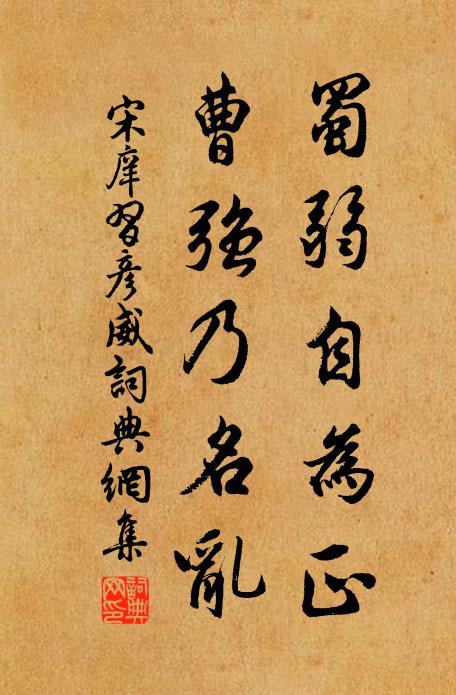 蜀弱自為正
曹強乃名亂
宋庠習彦威詞典網集
詞典網印